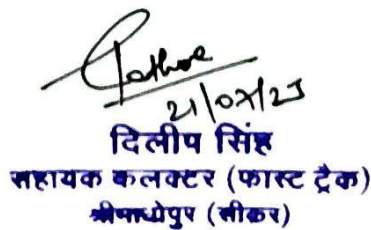 21/07/25
दिलीप सिंह
सहायक कलक्टर (फास्ट ट्रैक)
श्रीमाधोपुर (सीकर)